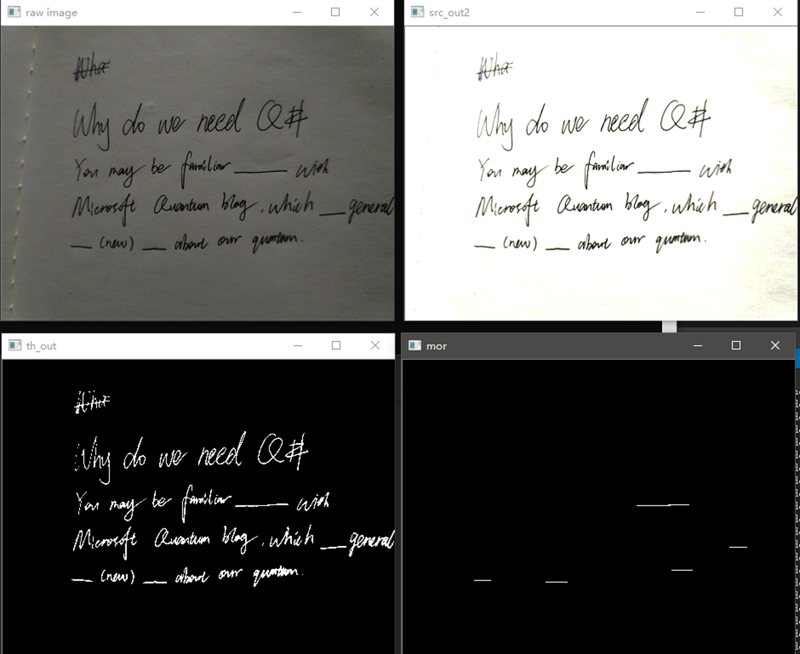 raw image
What
Why do we need Q#
You may be familiar ______ with
Microsoft Quantum blog, which ___ general
__ (new) ___ about our quantum.
src_out2
What
Why do we need Q#
You may be familiar ______ with
Microsoft Quantum blog, which ___ general
__ (new) ___ about our quantum.
th_out
What
Why do we need Q#
You may be familiar ______ with
Microsoft Quantum blog, which ___ general
__ (new) ___ about our quantum.
mor